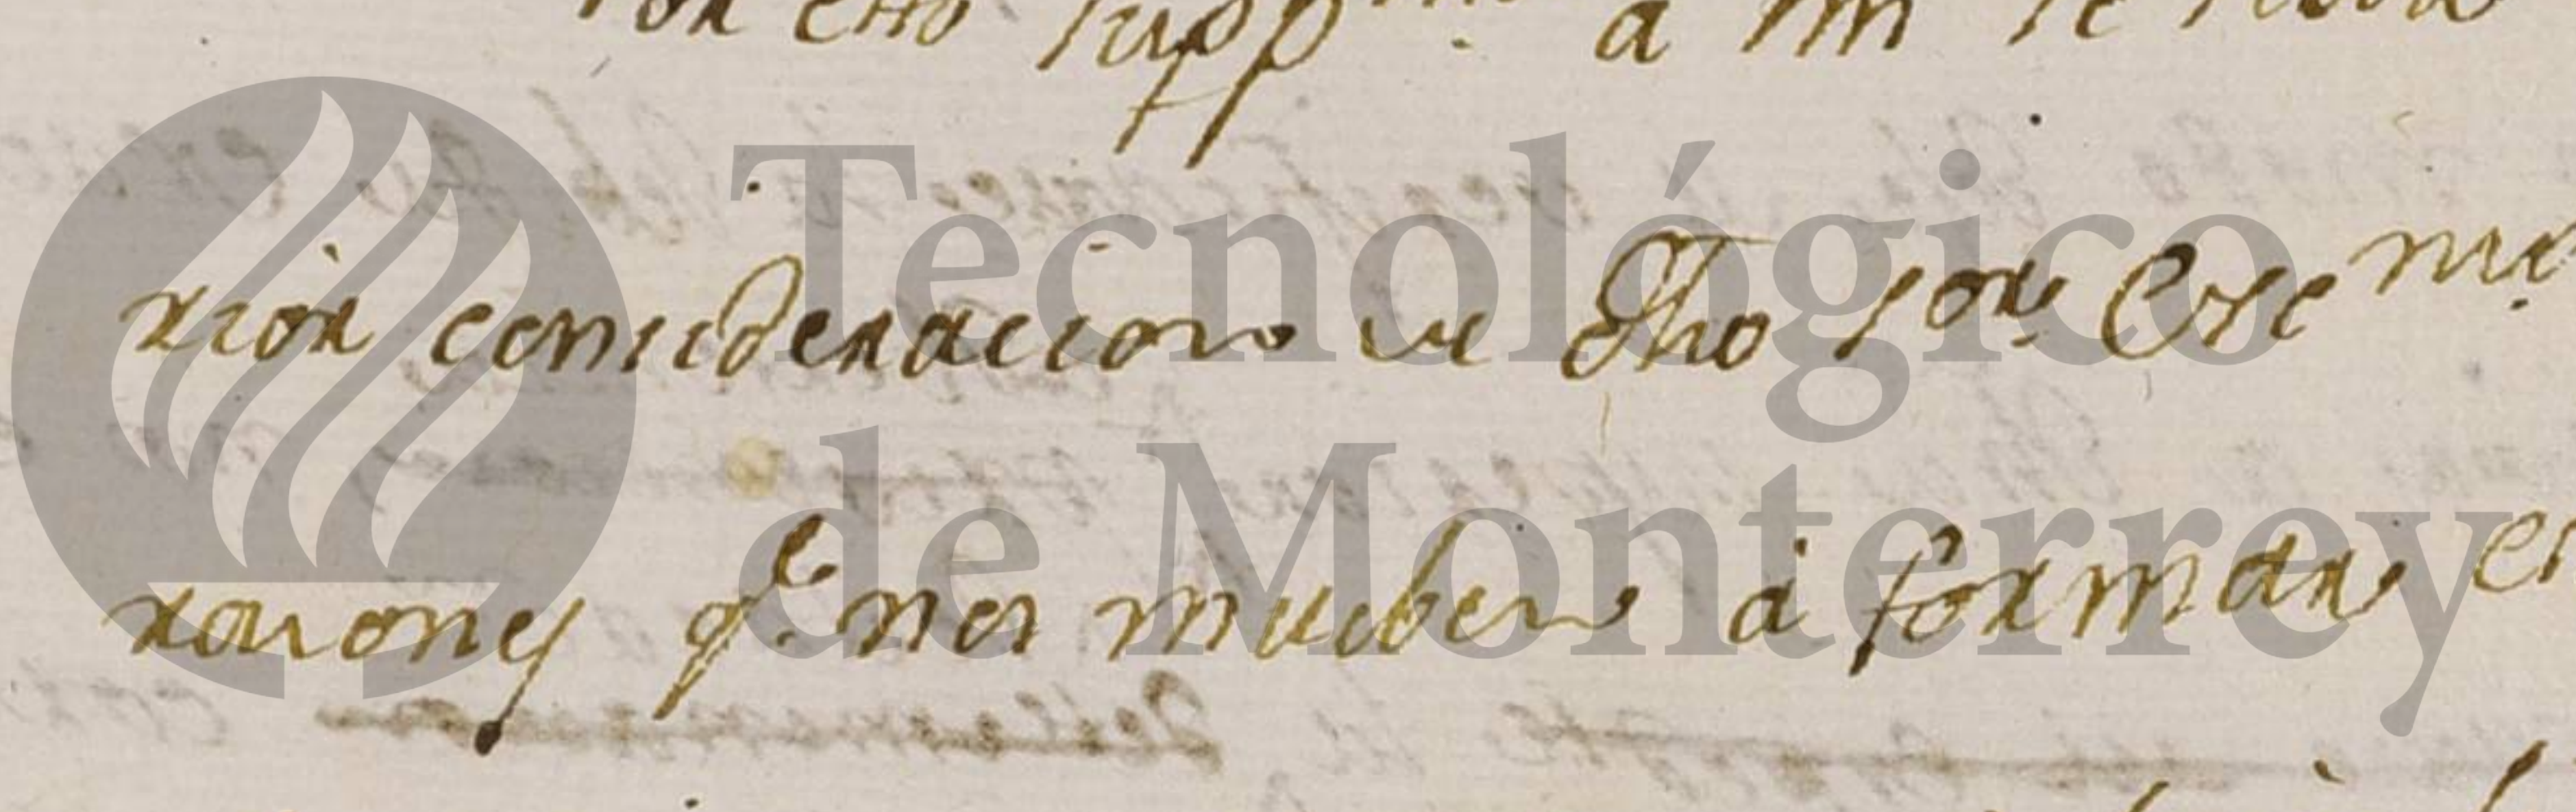 por esto supp.mo a Vm se sirva
rior consideracion de dho sor. Exe
razones q.e nos mueben á formar
Tecnológico
de Monterrey